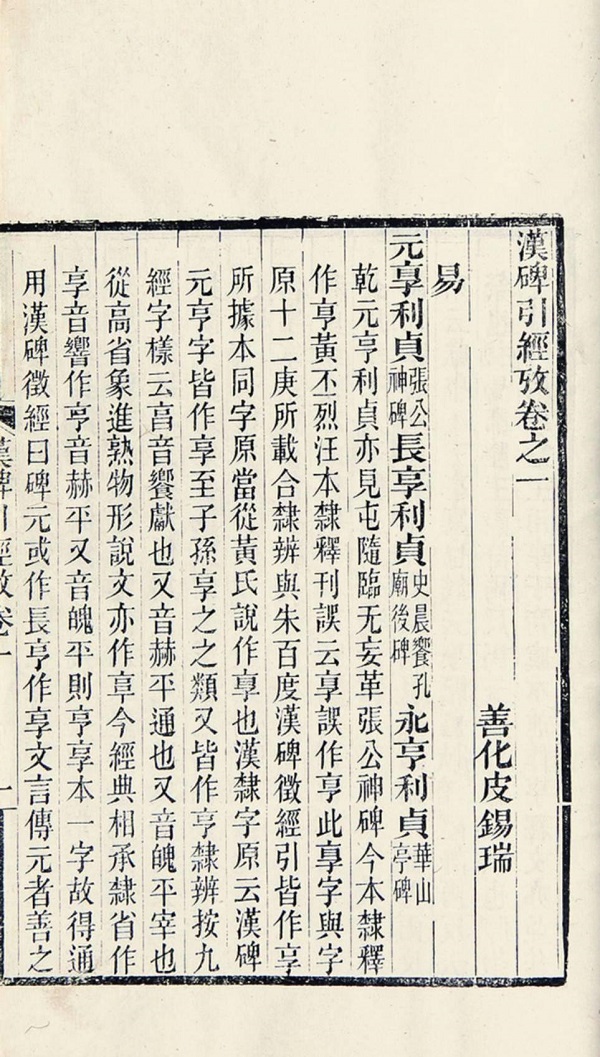 漢碑引經攷卷之一
善化皮錫瑞
易
元享利貞張公神碑長享利貞史晨饗孔廟後碑永亨利貞華山亭碑
乾元亨利貞亦見屯隨臨无妄革張公神碑今本隸釋
作亨黃丕烈汪本隸釋刊誤云享誤作亨此享字與字
原十二庚所載合隸辨與朱百度漢碑徵經引皆作享
所據本同字原當從黃氏說作享也漢隸字原云漢碑
元亨字皆作享至子孫享之之類又皆作亨隸辨按九
經字樣云亯音饗獻也又音赫平通也又音魄平宰也
從高省象進熟物形說文亦作亯今經典相承隸省作
享音響作亨音赫平又音魄平則亨享本一字故得通
用漢碑徵經曰碑元或作長亨作享文言傳元者善之
漢碑引經攷卷一
一